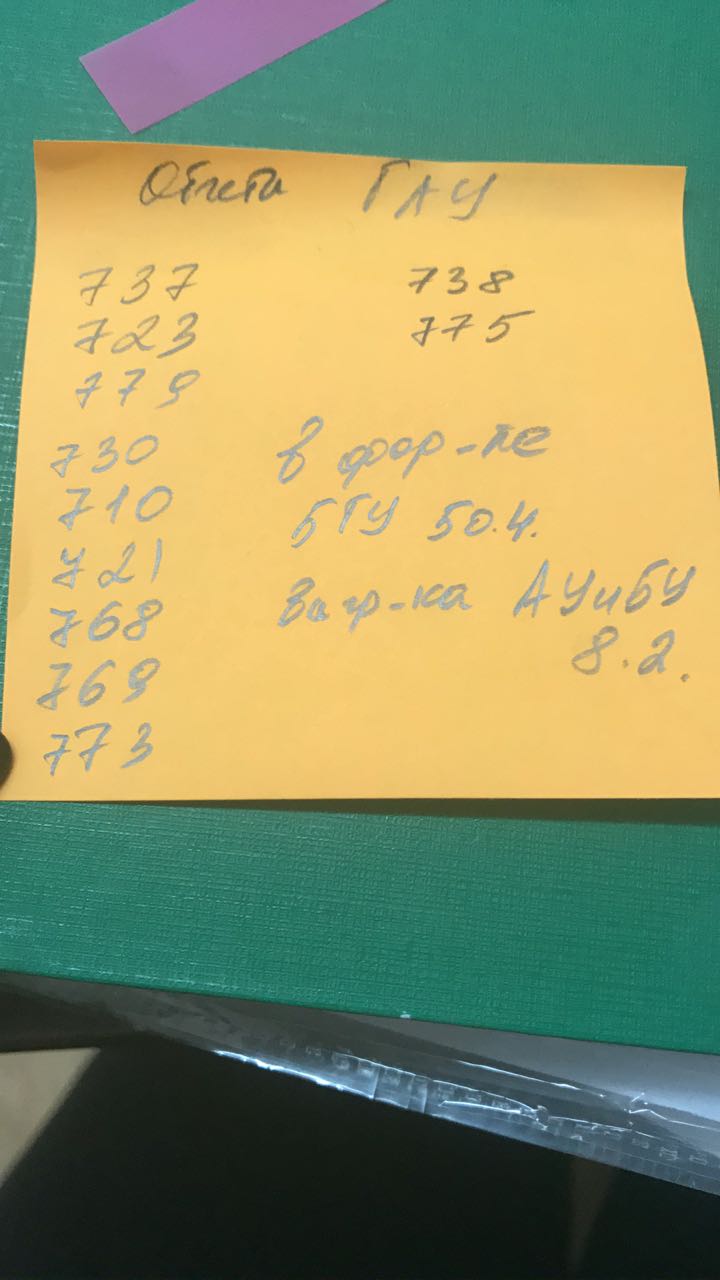 Отчеты ГАУ
737 738
723 775
779
730 в фор-те
710 БГУ 50.4.
721
768 Загр-ка АУиБУ
769 8.2.
773